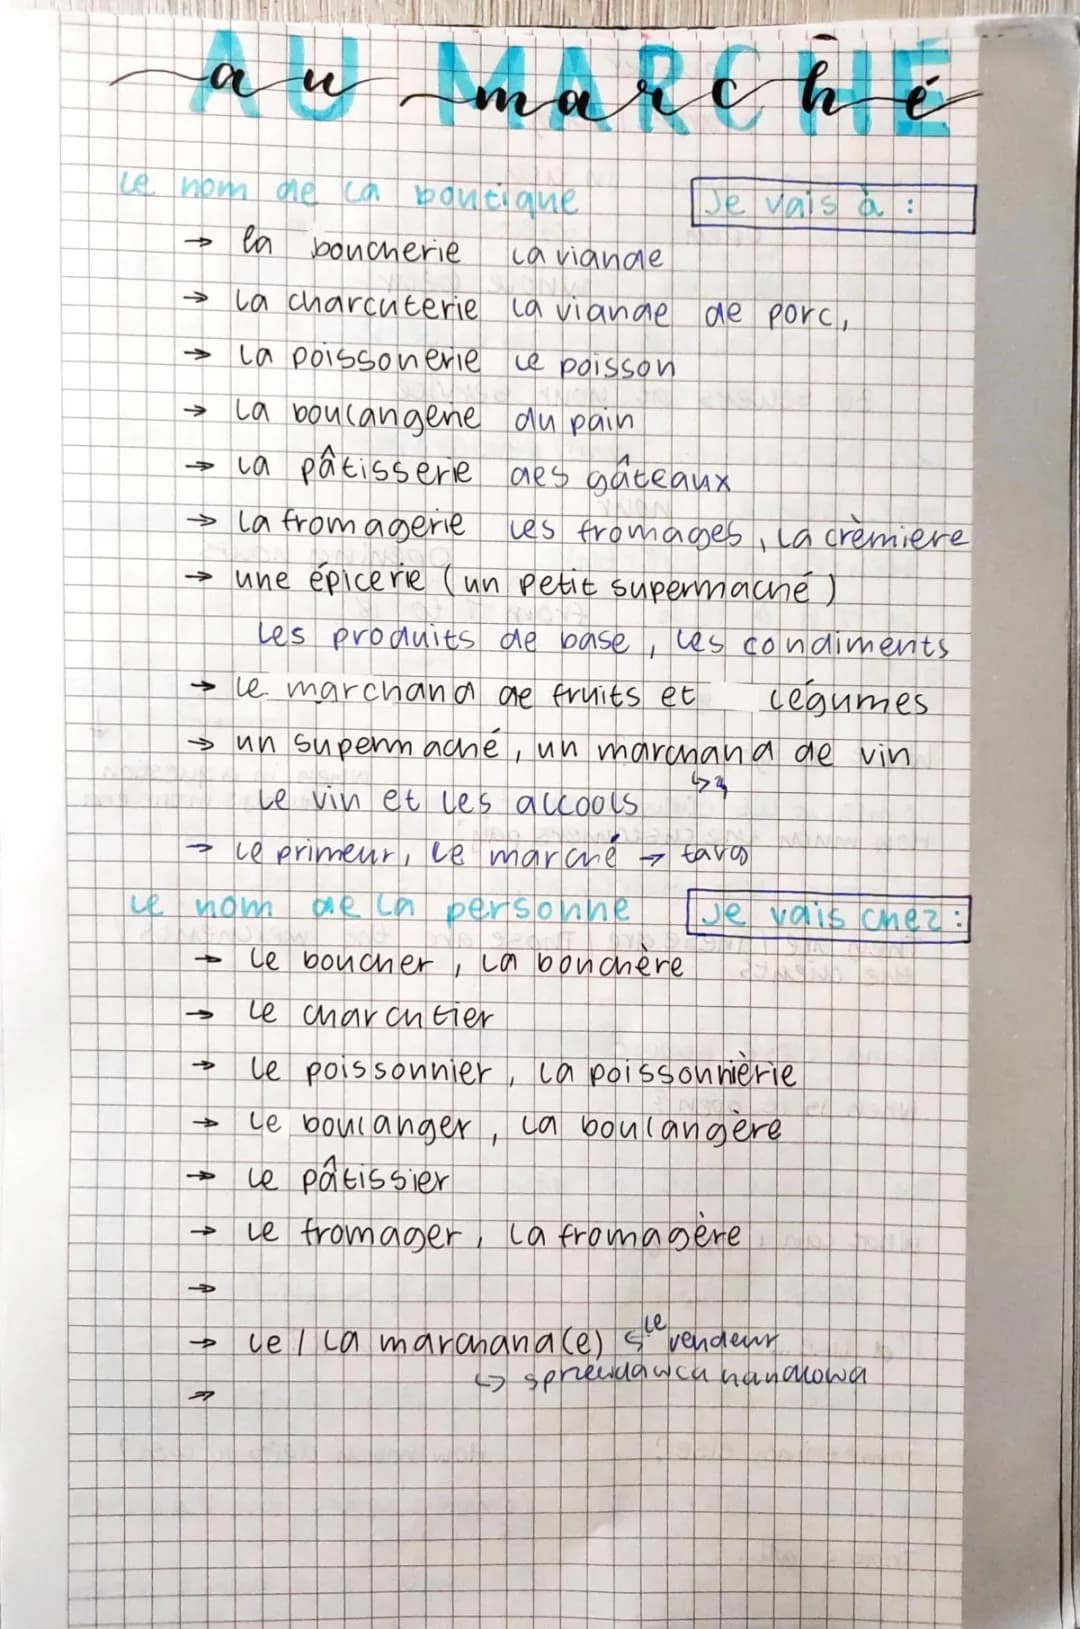 AU MARCHÉ
au marché
Le nom de la boutique Je vais à :
→ la boucherie la viande
→ la charcuterie la viande de porc,
→ la poissonerie le poisson
→ la boulangerie du pain
→ la pâtisserie des gâteaux
→ la fromagerie les fromages, la crèmiere
→ une épicerie (un petit supermaché)
les produits de base, les condiments
→ le marchand de fruits et légumes
→ un supermaché, un marchand de vin
le vin et les alcools
→ le primeur, le marché → targ
Le nom de la personne Je vais chez :
→ le boucher, la bouchère
→ le charcutier
→ le poissonnier, la poissonnièrie
→ le boulanger, la boulangère
→ le pâtissier
→ le fromager, la fromagère
→
→ le / la marchand(e) le vendeur
↳ sprzedawca handlowa
→